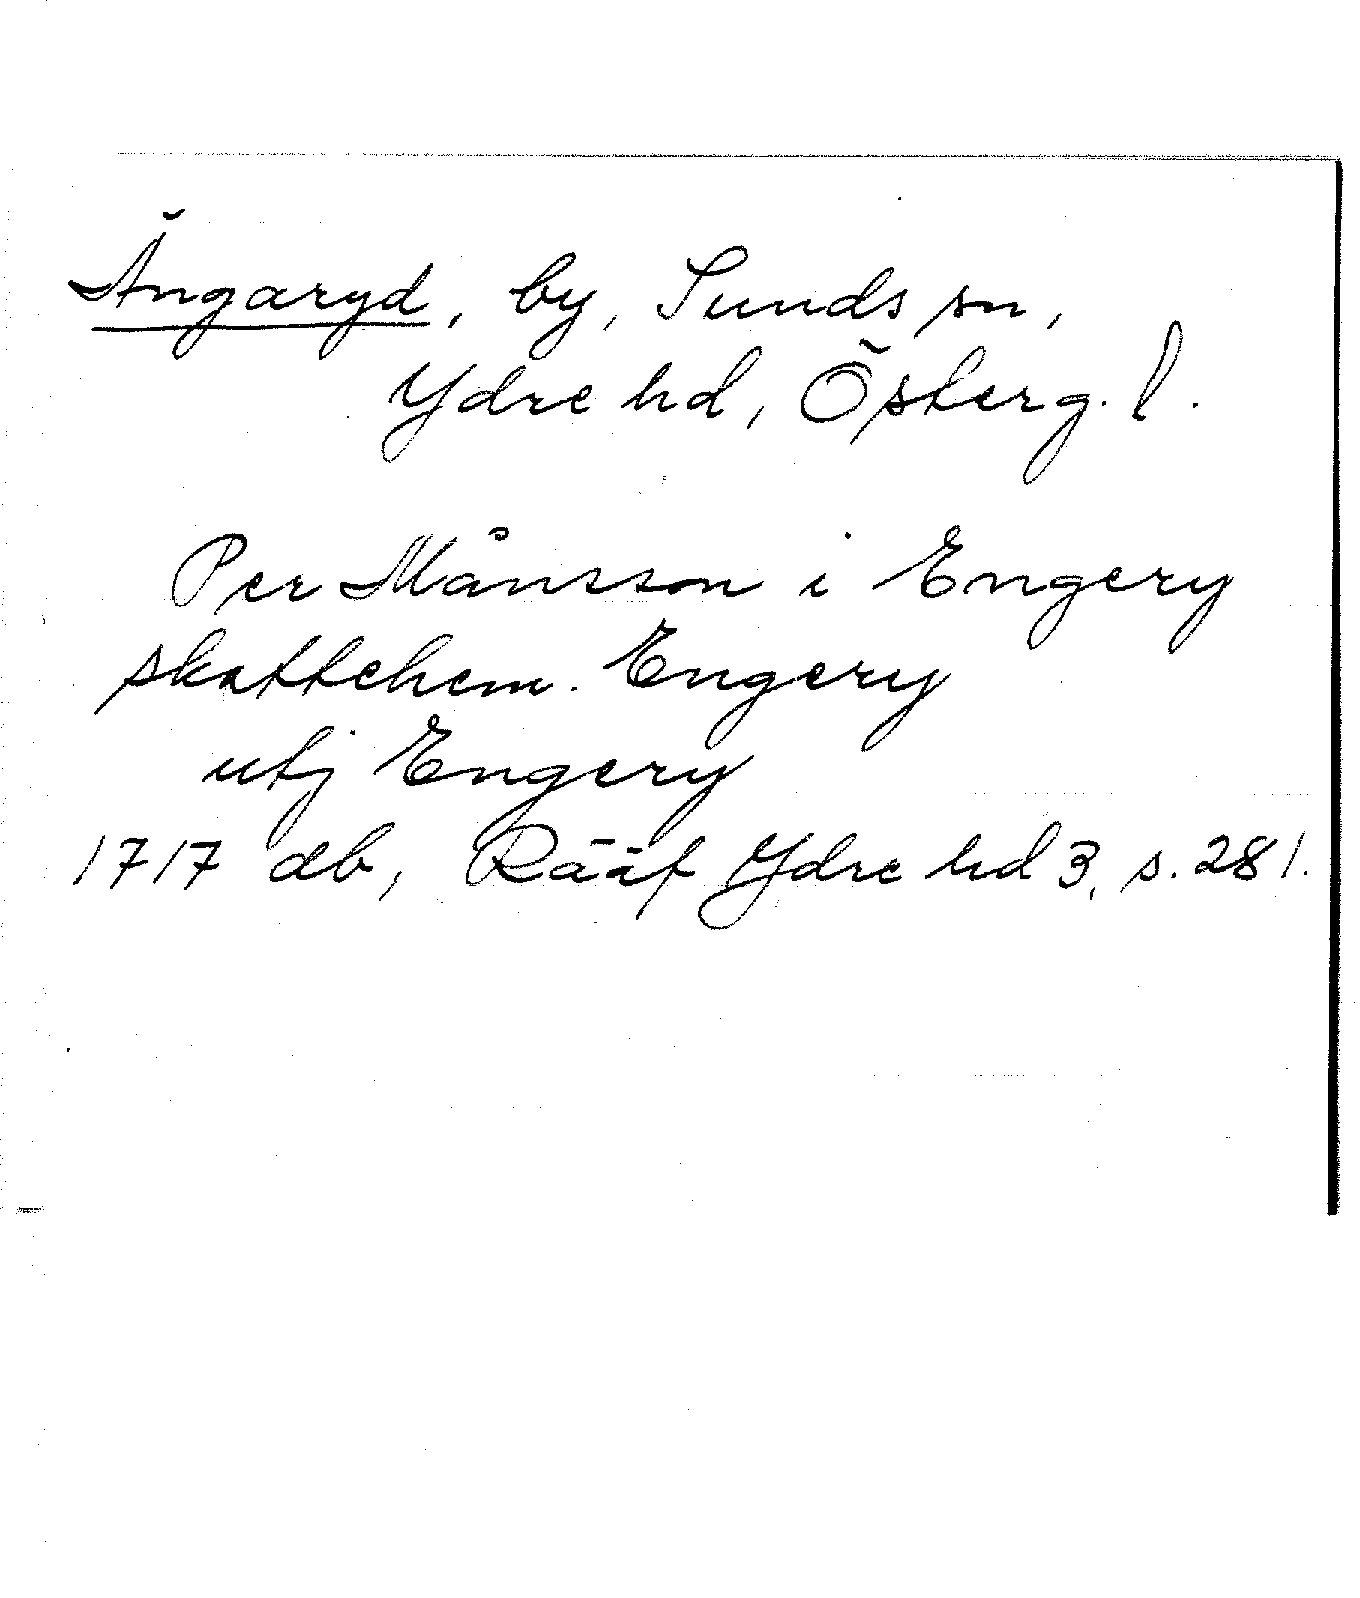 Ängaryd, by, Sunds sn,
Ydre hd, Österg. l.
Per Månsson i Engery
skattehem. Engery
utj Engery
1717 db, Rääf Ydre hd 3, s. 281.